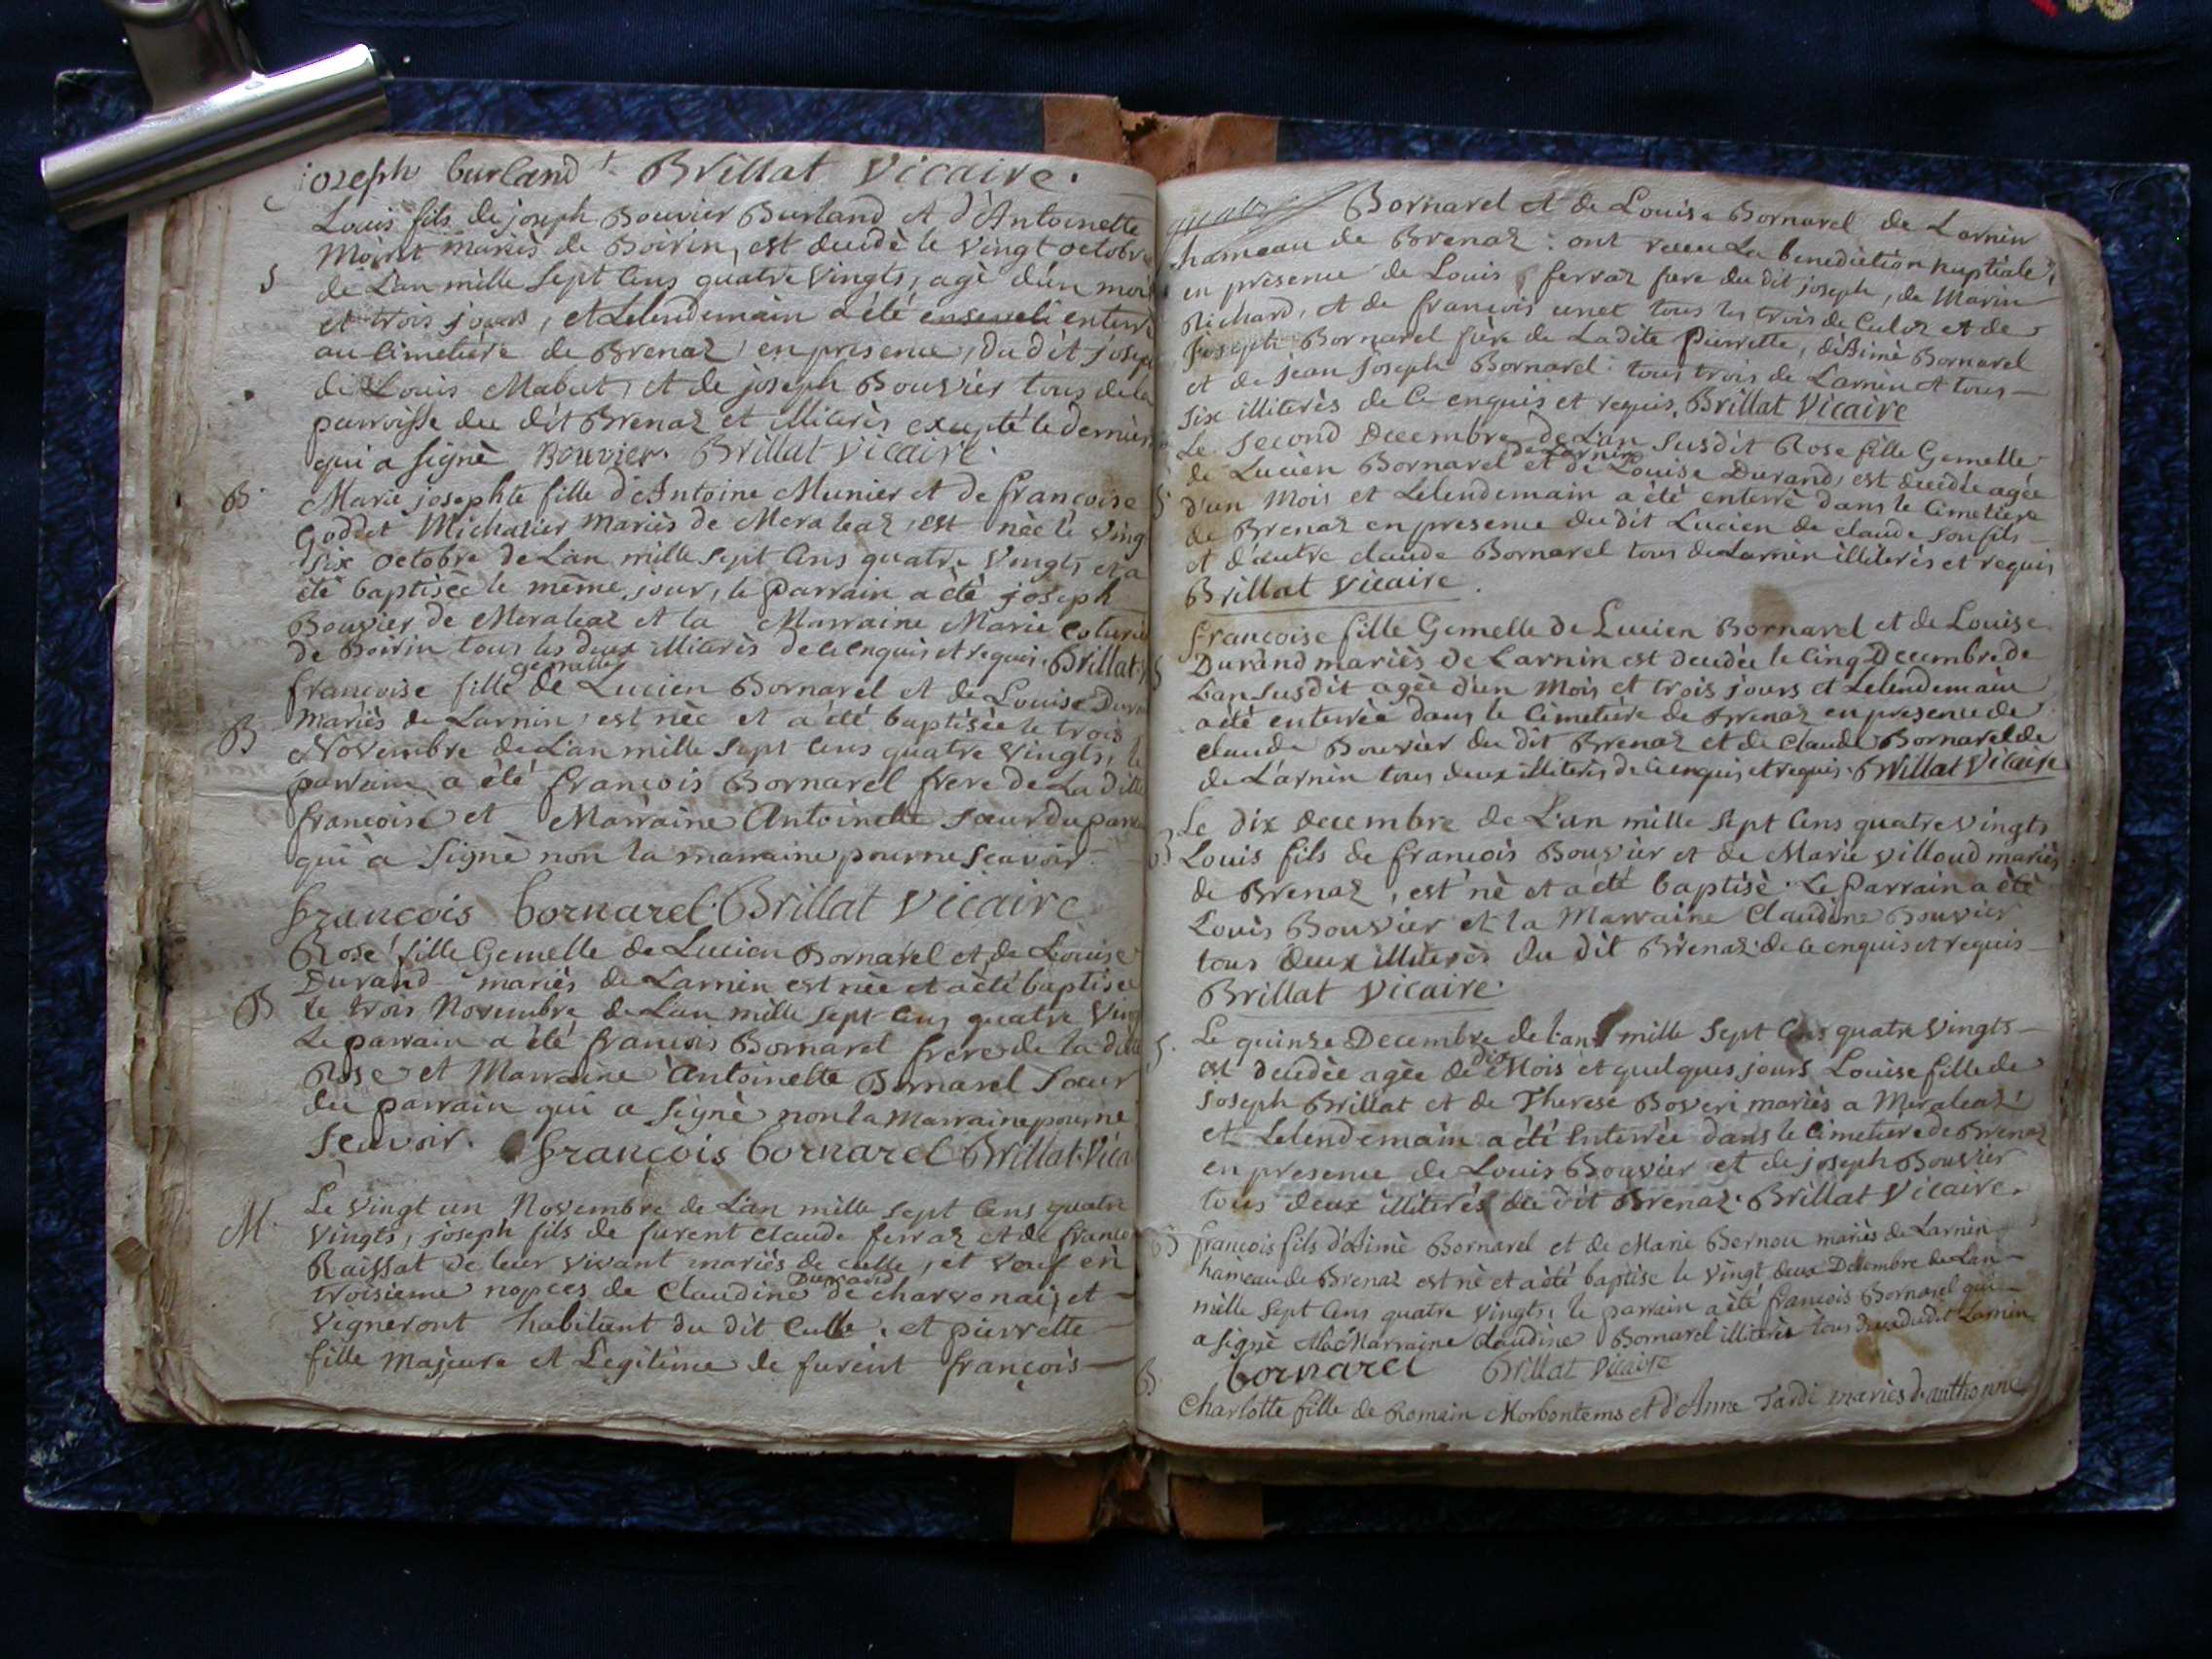 joseph burland Brillat Vicaire.
Louis fils de joseph Bouvier Burland et d'Antoinette
Moiret mariès de Boirin, est decidè le vingt octobre
S
de L'an mille sept Cens quatre vingts, agè d'un mois
et trois jours, et Lelendemain a été enseveli enterré
au Cimetiére de Brenaz en presence, du dit joseph
de Louis Mabut, et de joseph Bouvier tous de la
parroisse du dit Brenaz et illiterès excepté le dernier
qui a signè Bouvier. Brillat Vicaire.
B
Marie josephte fille d'Antoine Munier et de françoise
Goddet Michalier mariès de Meraleaz, est nèe le ving
six octobre de L'an mille sept Cens quatre vingts et a
été baptisèe le même jour, le parrain a èté joseph
Bouvier de Meraleaz et la Marraine Marie
de Boirin tous les deux illiterès de ce enquis et requis. Brillat
gemelle
francoise fille de Lucien Bornarel et de Louise Duran
mariès de Larnin, est nèe et a été baptisèe le trois
B
Novembre de L'an mille sept Cens quatre vingts, le
parrain a été francois Bornarel frere de La dite
francoise et Marraine Antoinette sœur du parrain
qui a signè non la marraine pour ne scavoir.
francois bornarel. Brillat Vicaire
Rose fille Gemelle de Lucien Bornarel et de Louise
Durand mariès de Larnin est nèe et a èté baptisèe
B
le trois Novembre de L'an mille sept Cens quatre ving
Le parrain a été francois Bornarel frere de la dite
Rose et Marraine Antoinette Bornarel sœur
du parrain qui a signè non la Marraine pour ne
scavoir. francois bornarel Brillat Vica
M.
Le vingt un Novembre de L'an mille sept Cens quatre
vingts, joseph fils de furent Claude ferraz et de
Raissat de leur vivant mariès de culle, et veuf en
Durand
troisieme nopces de Claudine de charvonai, et
vigneront habitant du dit Culle, et pierrette
fille Majeure et Legitime de furent françois
Bornarel et de Louise Bornarel de Larnin
hameau de Brenaz : ont receu La benediction nuptiale,
en presence de Louis ferraz frere du dit joseph, de Marin
Richard, et de francois cunet tous les trois de Culoz et de
Joseph Bornarel frère de Ladite pierrette, d'Aimè Bornarel
et de jean joseph Bornarel : tous trois de Larnin et tous
six illiterès de Ce enquis et requis. Brillat Vicaire
Le second Decembre de L'an susdit Rose fille Gemelle
de Larnin
de Lucien Bornarel et de Louise Durand, est decidèe agèe
S
d'un Mois et Lelendemain a été enterrè dans le Cimetiere
de Brenaz en presence du dit Lucien de claude son fils
et d'autre claude Bornarel tous de Larnin illiterès et requis
Brillat Vicaire.
francoise fille Gemelle de Lucien Bornarel et de Louise
Durand mariès de Larnin est decidèe le Cinq Decembre de
S
L'an susdit agèe d'un Mois et trois jours et Lelendemain
a été enterrèe dans le Cimetiére de Brenaz en presence de
claude Bouvier du dit Brenaz et de Claude Bornarel de
de Larnin tous deux illiterès de ce enquis et requis. Brillat Vicaire
Le dix decembre de L'an mille sept Cens quatre vingts
B
Louis fils de francois Bouvier et de Marie villoud mariès
de Brenaz, est nè et a été baptisè. Le Parrain a èté
Louis Bouvier et la Marraine Claudine Bouvier
tous deux illiterès du dit Brenaz de ce enquis et requis
Brillat Vicaire.
S.
Le quinse Decembre de l'an mille Sept Cens quatre vingts
dix
est decidèe agèe de Mois et quelques jours Louise fille de
joseph Brillat et de Therese Boveri mariès a Meraleaz
et Lelendemain a été Enterrèe dans le Cimetiere de Brenaz
en presence de Louis Bouvier et de joseph Bouvier
tous deux illiterés du dit Brenaz. Brillat Vicaire.
B
francois fils d'Aimè Bornarel et de Marie Bernou mariès de Larnin
hameau de Brenaz est nè et a èté baptise le vingt deux Decembre de Lan
mille sept Cens quatre vingts, le parrain a été francois Bornarel qui
a signè et la Marraine Claudine Bornarel illiterèe tous deux du dit Larnin
bornarel Brillat Vicaire
B.
Charlotte fille de Romain Morbontems et d'Anne Tardi mariès